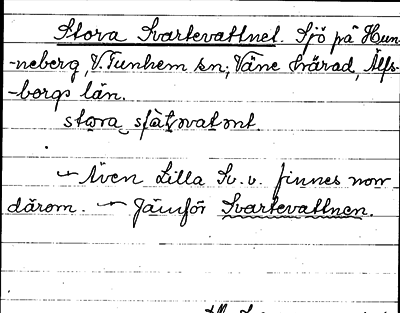 Stora Svartevattnet. Sjö på Hun-
-neberg, V. Tunhem sn; Väne härad, Älfs-
-borgs län.
stora
– Även Lilla Sv. v. finnes norr
därom. – Jämför Svartevattnen.